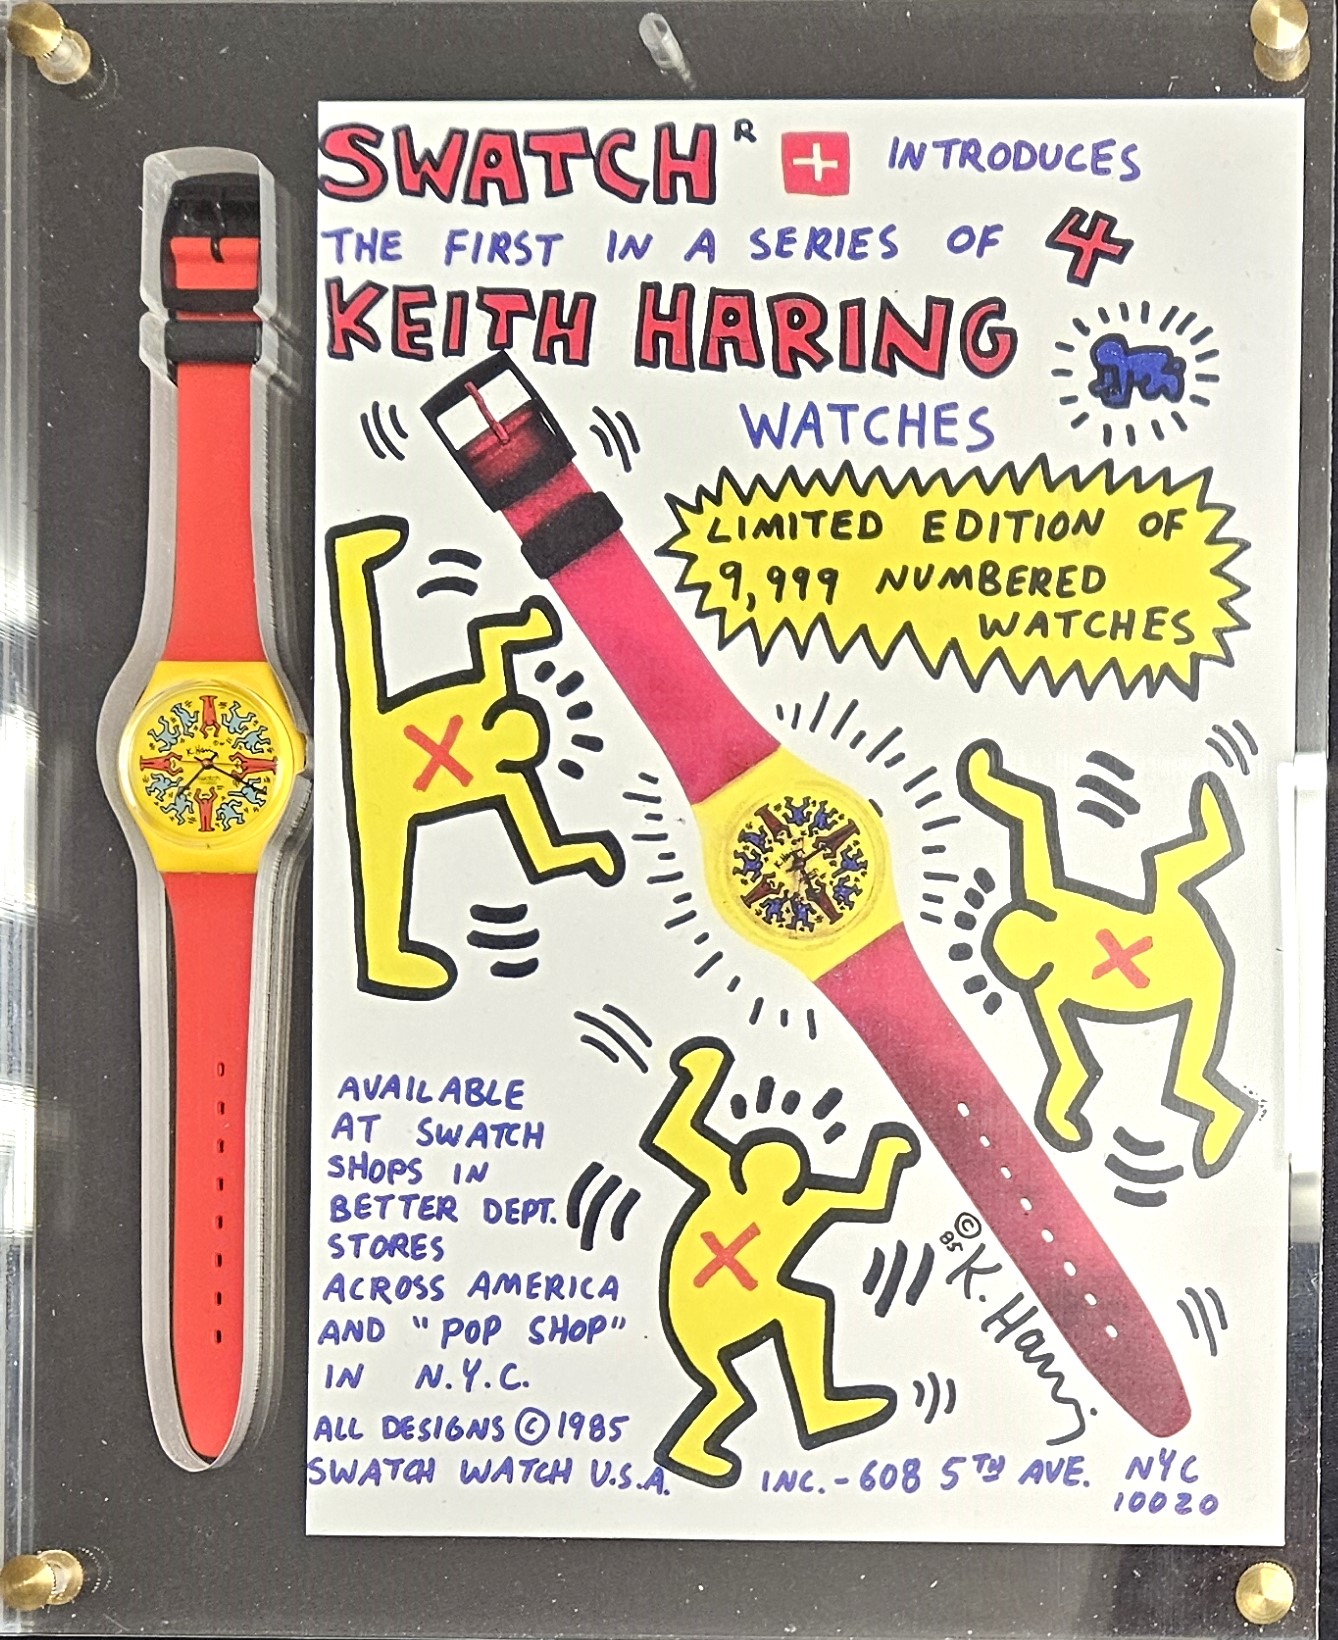 SWATCH R INTRODUCES
THE FIRST IN A SERIES OF 4
KEITH HARING
WATCHES
LIMITED EDITION OF
9,999 NUMBERED
WATCHES
AVAILABLE
AT SWATCH
SHOPS IN
BETTER DEPT.
STORES
ACROSS AMERICA
AND "POP SHOP"
IN N.Y.C.
ALL DESIGNS ©1985
SWATCH WATCH U.S.A. INC.-608 5TH AVE. NYC
10020
© 85 K. Haring
K. Haring
swatch